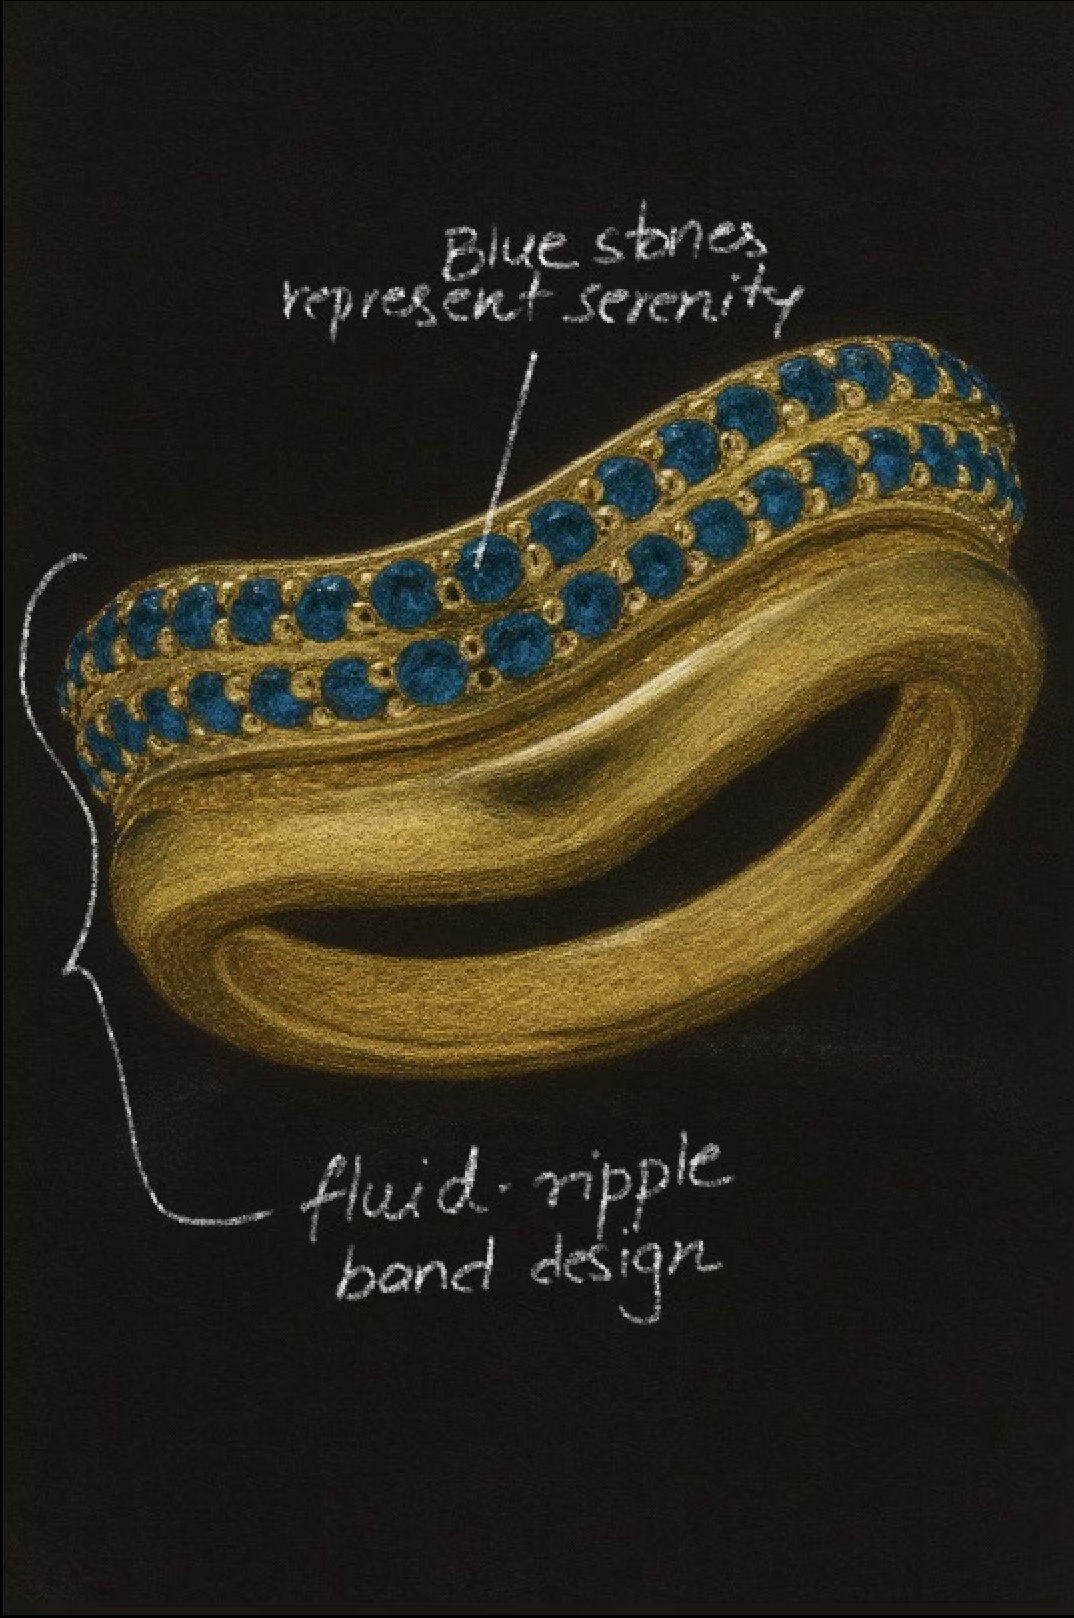 Blue stones
represent serenity
fluid-ripple
band design